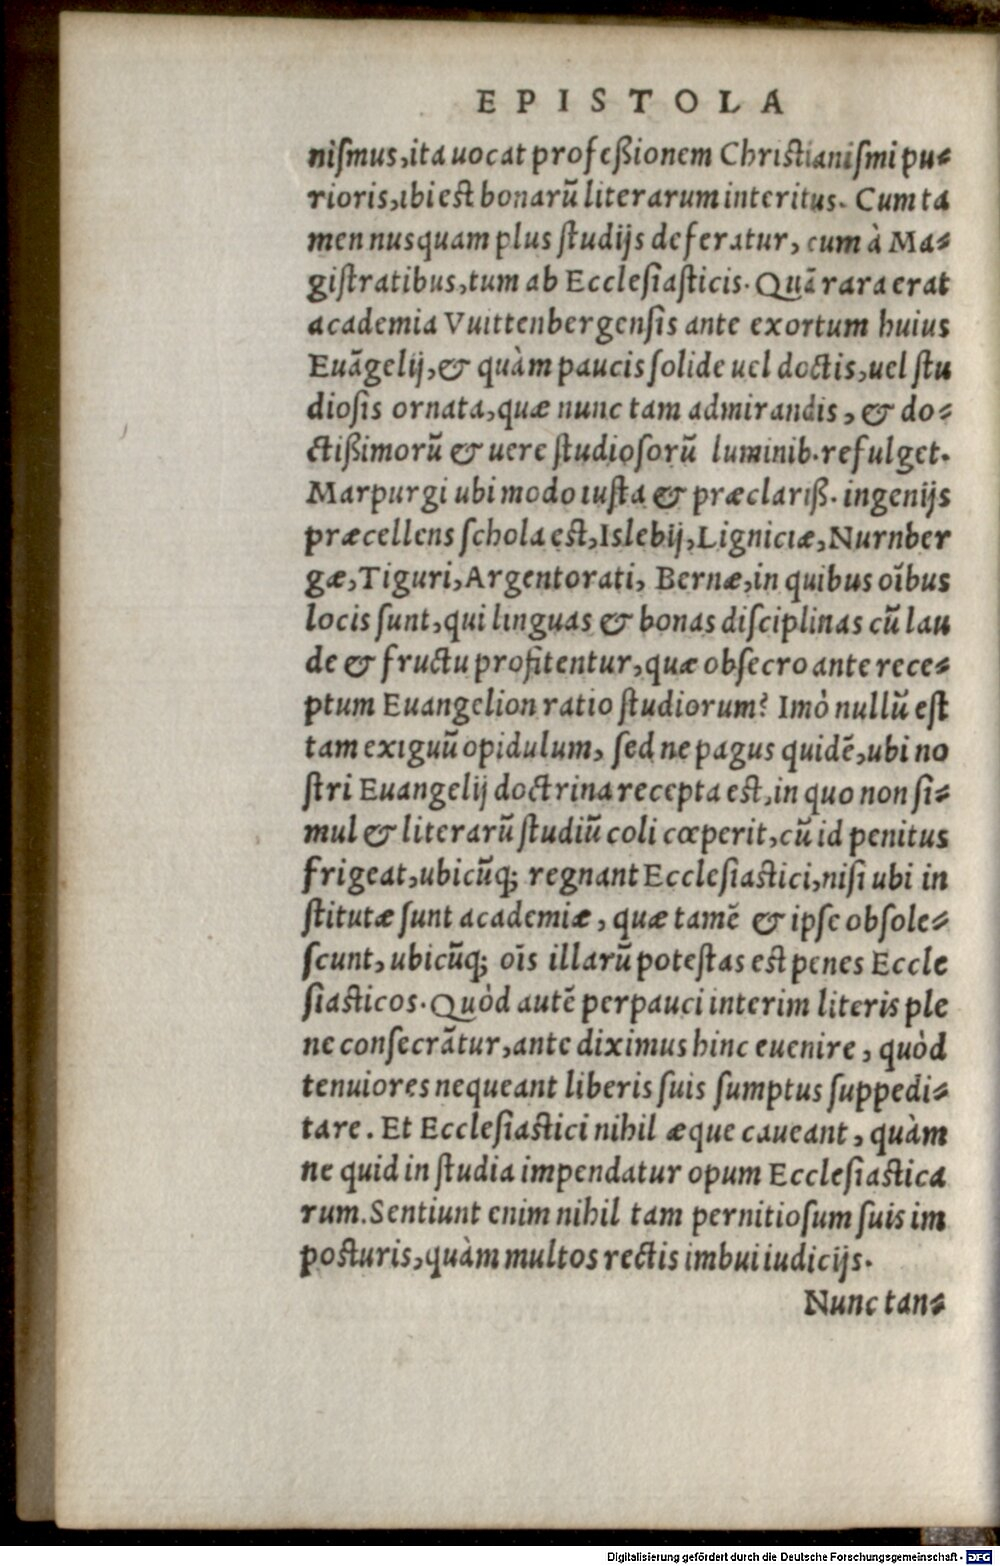 EPISTOLA
niſmus, ita uocat profeßionem Chriſtianiſmi pu-
rioris, ibi est bonarū literarum interitus. Cum ta
men nusquam plus ſtudijs deferatur, cum à Ma-
giſtratibus, tum ab Eccleſiaſticis. Quā rara erat
academia Vuittenbergenſis ante exortum huius
Euāgelij, & quàm paucis ſolide uel doctis, uel ſtu
dioſis ornata, quæ nunc tam admirandis, & do-
ctißimorū & uere ſtudioſorū luminib. refulget.
Marpurgi ubi modo iuſta & præclariß. ingenijs
præcellens ſchola eſt, Islebij, Ligniciæ, Nurnber
gæ, Tiguri, Argentorati, Bernæ, in quibus oībus
locis ſunt, qui linguas & bonas diſciplinas cū lau
de & fructu profitentur, quæ obſecro ante rece-
ptum Euangelion ratio ſtudiorum? Imò nullū eſt
tam exiguū opidulum, ſed ne pagus quidē, ubi no
ſtri Euangelij doctrina recepta eſt, in quo non ſi-
mul & literarū ſtudiū coli cœperit, cū id penitus
frigeat, ubicūq; regnant Eccleſiaſtici, niſi ubi in
ſtitutæ ſunt academiæ, quæ tamē & ipſe obſole-
ſcunt, ubicūq; oīs illarū poteſtas eſt penes Eccle
ſiaſticos. Quòd autē perpauci interim literis ple
ne conſecrātur, ante diximus hinc euenire, quòd
tenuiores nequeant liberis ſuis ſumptus ſuppedi-
tare. Et Eccleſiaſtici nihil æque caueant, quàm
ne quid in ſtudia impendatur opum Eccleſiaſtica
rum. Sentiunt enim nihil tam pernitioſum ſuis im
poſturis, quàm multos rectis imbui iudicijs.
Nunc tan-
Digitalisierung gefördert durch die Deutsche Forschungsgemeinschaft - DFG